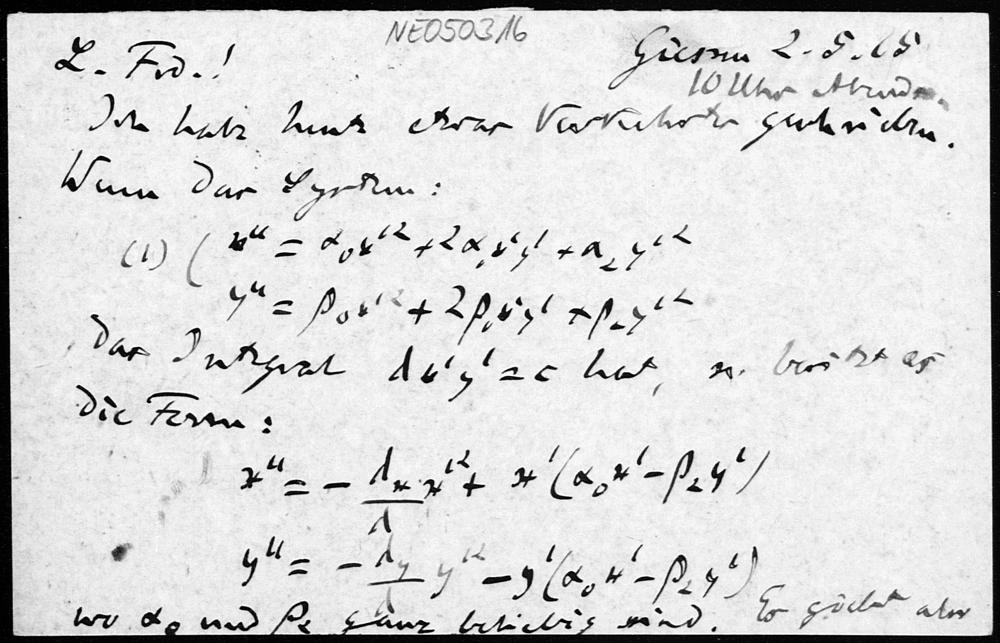 NE050316
L. Frd.!
Giessen 2.5.25
10 Uhr Abends.
Ich habe heute etwas Verkehrtes geschrieben.
Wenn das System:
(1) ( x'' = α₀x'² + 2α₁x'y' + α₂y'²
y'' = β₀x'² + 2β₁x'y' + β₂y'²
das Integral λx'y' = c hat, so besitzt es
die Form:
x'' = − λₓ/λ x'² + x'(α₀x' − β₂y')
y'' = − λ_y/λ y'² − y'(α₀x' − β₂y')
wo α₀ und β₂ ganz beliebig sind. Es giebt also